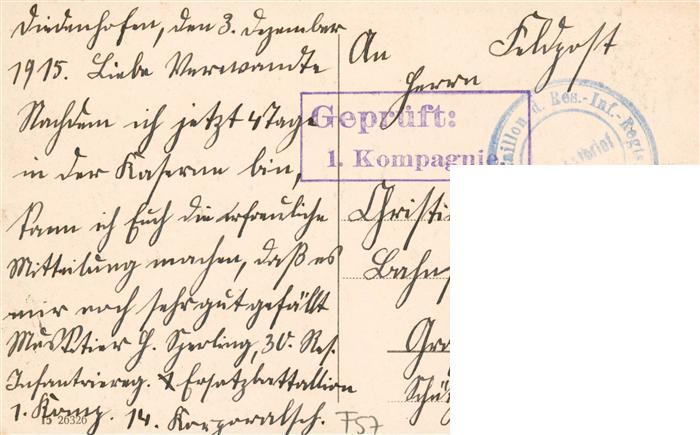 Diedenhofen, den 3. Dezember
1915. Liebe Verwandte
Nachdem ich jetzt 4 Tage
in der Kaserne bin,
kann ich Euch die erfreuliche
Mitteilung machen, daß es
mir noch sehr gut gefällt
Musketier H. Sperling, 30. Res.
Infantriereg. Ersatzbattallion
1. Komp. 14. Korporalsch.
15 26326
An Feldpost
Herrn
Geprüft:
1. Kompagnie.
aillon d. Res.-Inf.-Regts
brief
Christi
Bahn
Gro
Schü
F57